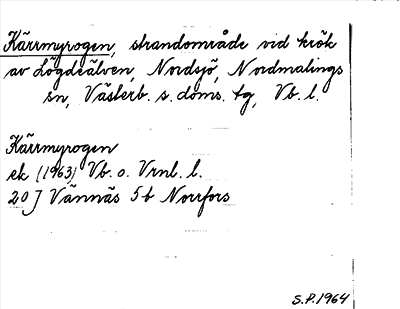 Kärrmyrogen, strandområde vid krök
av Lögdeälven, Nordsjö, Nordmalings
sn, Västerb. s. doms. tg, Vb. l.
Kärrmyrogen
ek (1963) Vb. o. Vrnl. l.
20 J Vännäs 5b Norrfors
S.P. 1964